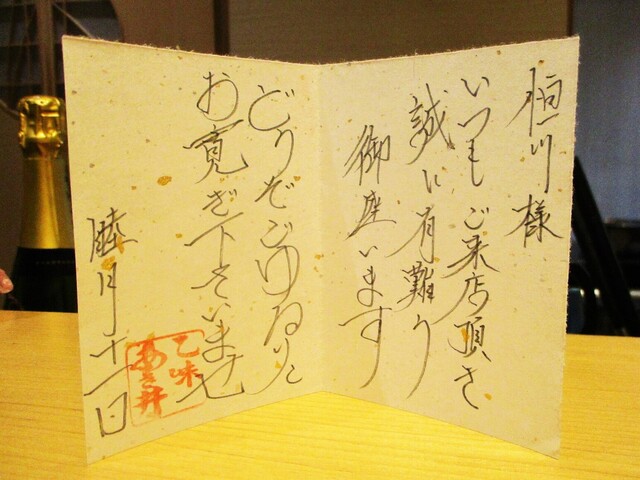 恒川様
いつもご来店頂き
誠に有難う
御座います
どうぞごゆるりと
お寛ぎ下さいませ
睦月十一日
乙味
あき井